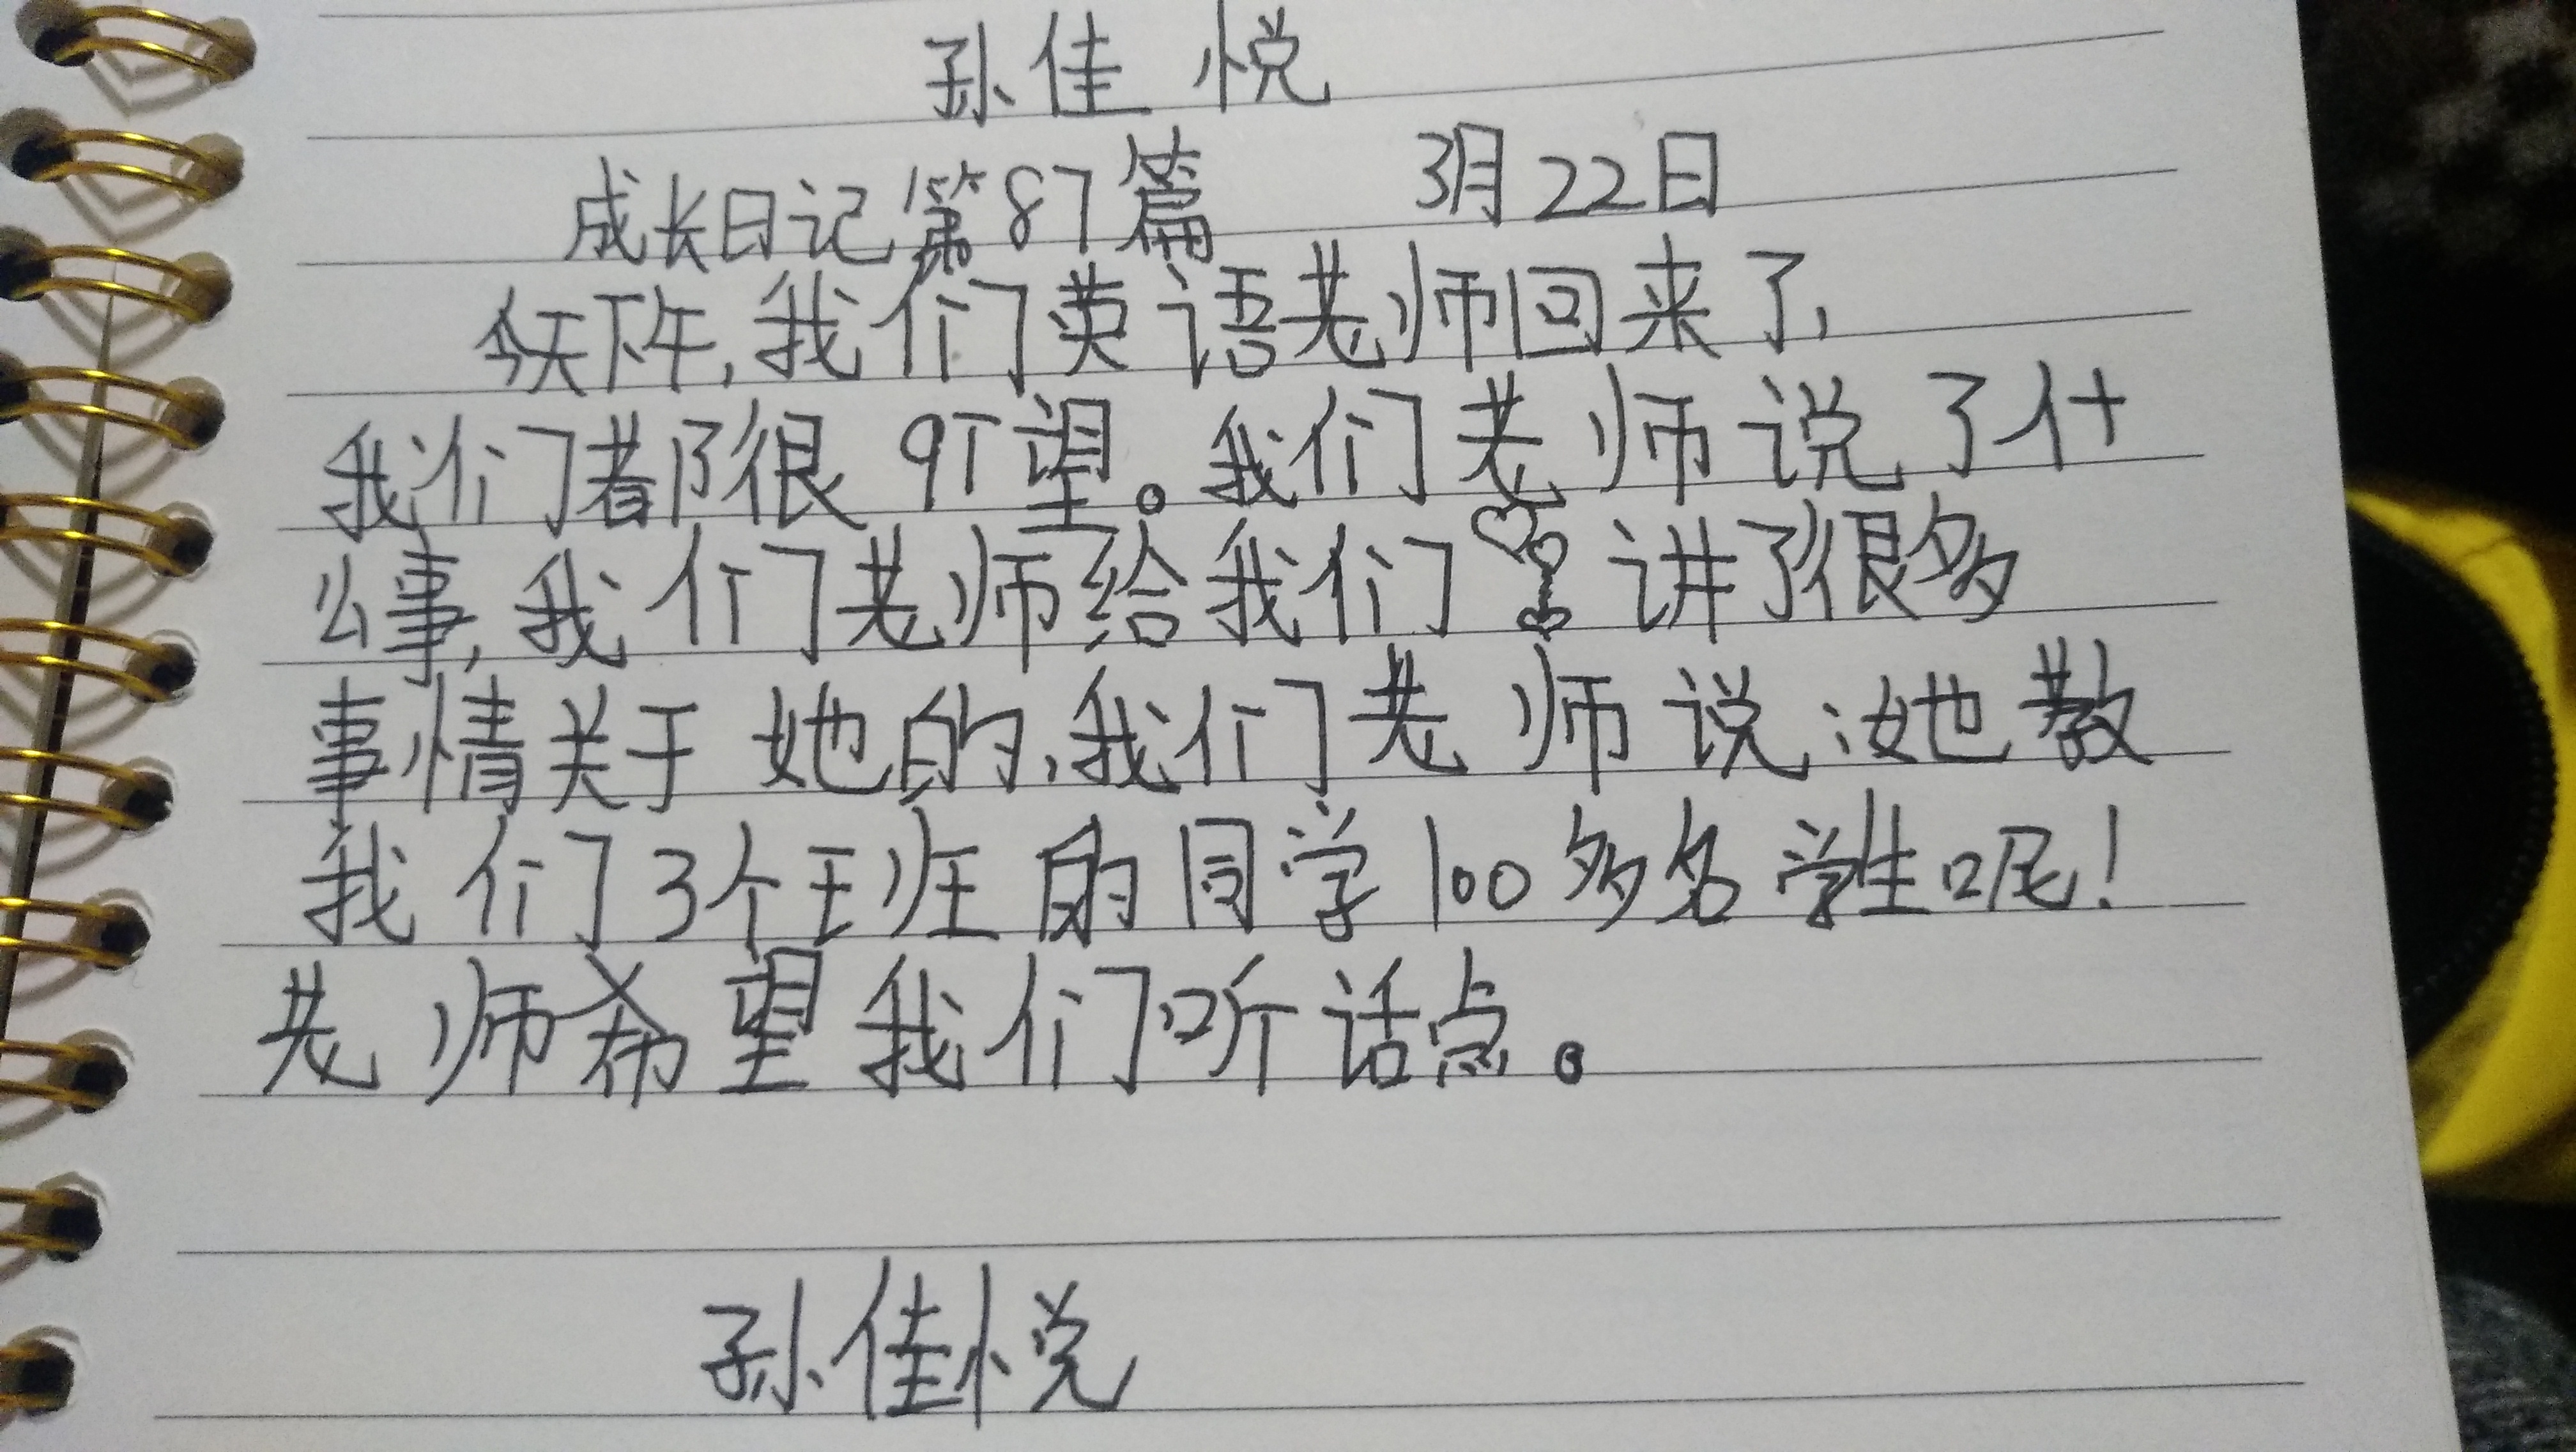 孙佳悦
成长日记第87篇 3月22日
今天下午,我们英语老师回来了,
我们都很 望。我们老师说了什
么事,我们老师给我们讲了很多
事情关于她的,我们老师说:她教
我们3个班的同学100多名学生呢!
老师希望我们听话点。
孙佳悦